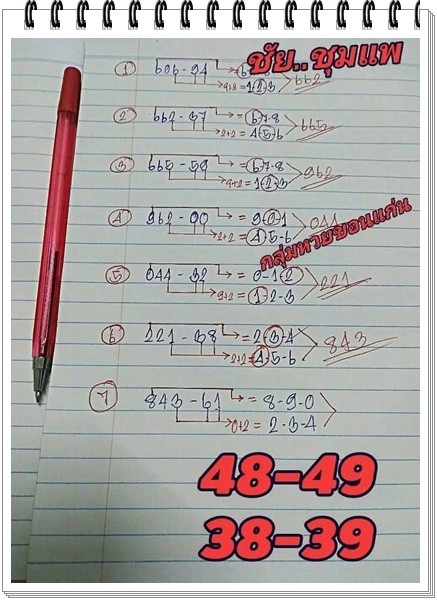 ชัย..ชุมแพ
1 606-94
9+8=1-2-3 662
2 662-37 =6-7-8
2+2=4-5-6 665
3 665-59 =6-7-8
9+2=1-2-3 962
4 962-00 =9-0-1
2+2=4-5-6 044
กลุ่มหวยขอนแก่น
5 044-32 =0-1-2
9+2=1-2-3 221
6 221-38 =2-3-4
2+2=4-5-6 843
7 843-61 =8-9-0
0+2=2-3-4
48-49
38-39